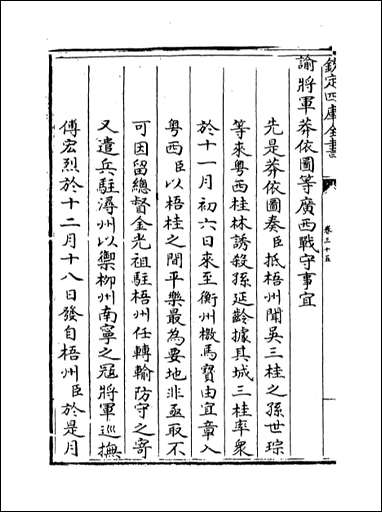 欽定四庫全書
卷三十五
諭將軍莽依圖等廣西戰守事宜
先是莽依圖奏臣抵梧州聞吳三桂之孫世琮
等來粤西桂林誘殺孫延齡據其城三桂率衆
於十一月初六日來至衡州檄馬寶由宜章入
粤西臣以梧桂之間平樂最為要地非亟取不
可因留總督金光祖駐梧州任轉輸防守之寄
又遣兵駐潯州以禦柳州南寧之冦將軍巡撫
傅宏烈於十二月十八日發自梧州臣於是月